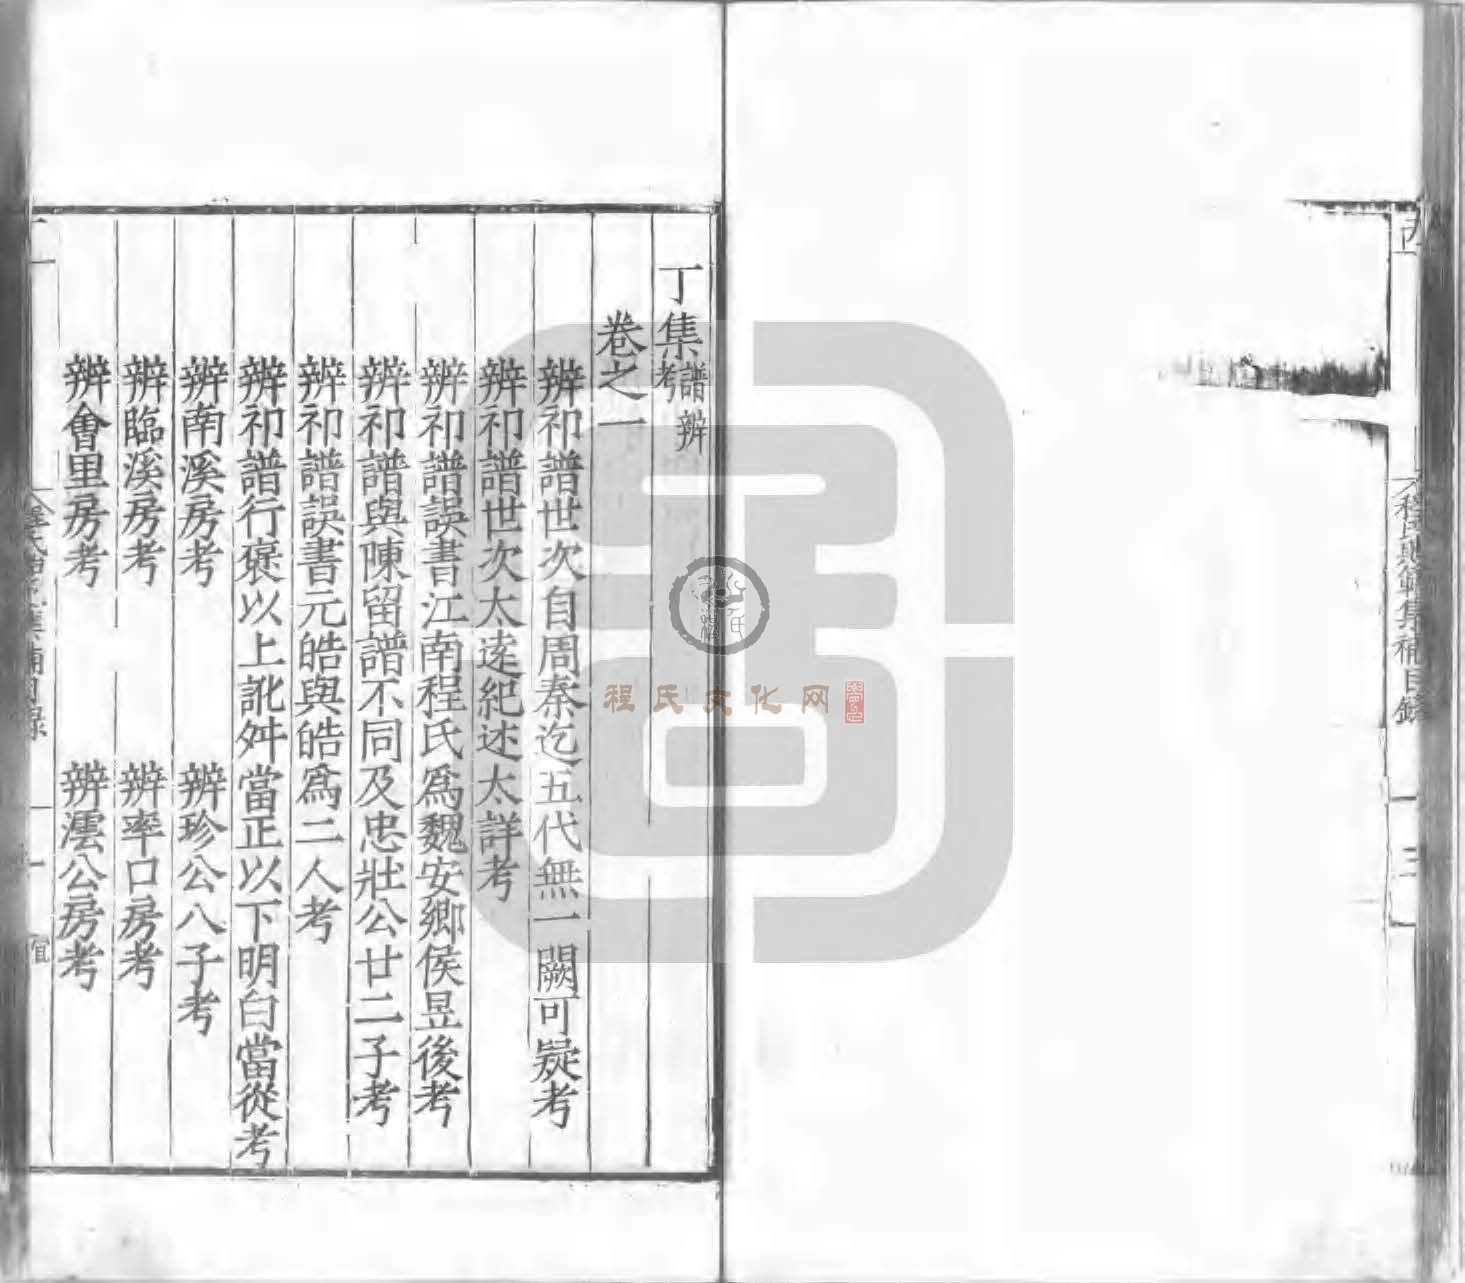 丁集譜辨考
卷之一
辨祁譜世次自周秦迄五代無一闕可疑考
辨祁譜世次太遠紀述太詳考
辨祁譜誤書江南程氏爲魏安鄉侯昱後考
辨祁譜與陳留譜不同及忠壯公廿二子考
辨祁譜誤書元皓與皓爲二人考
辨祁譜行褒以上訛舛當正以下明白當從考
辨南溪房考 辨珍公八子考
辨臨溪房考 辨率口房考
辨會里房考 辨澐公房考
程氏貽範集補目錄
三
程氏文化网